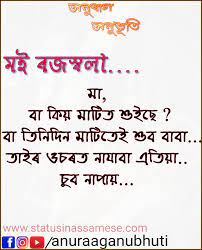 অনুৰাগ
অনুভূতি
মই ৰজস্বলা....
মা,
বা কিয় মাটিত শুইছে ?
বা তিনিদিন মাটিতেই শুব বাবা...
তাইৰ ওচৰত নাযাবা এতিয়া..
চুব নাপায়...
www.statusinassamese.com
/anuraaganubhuti